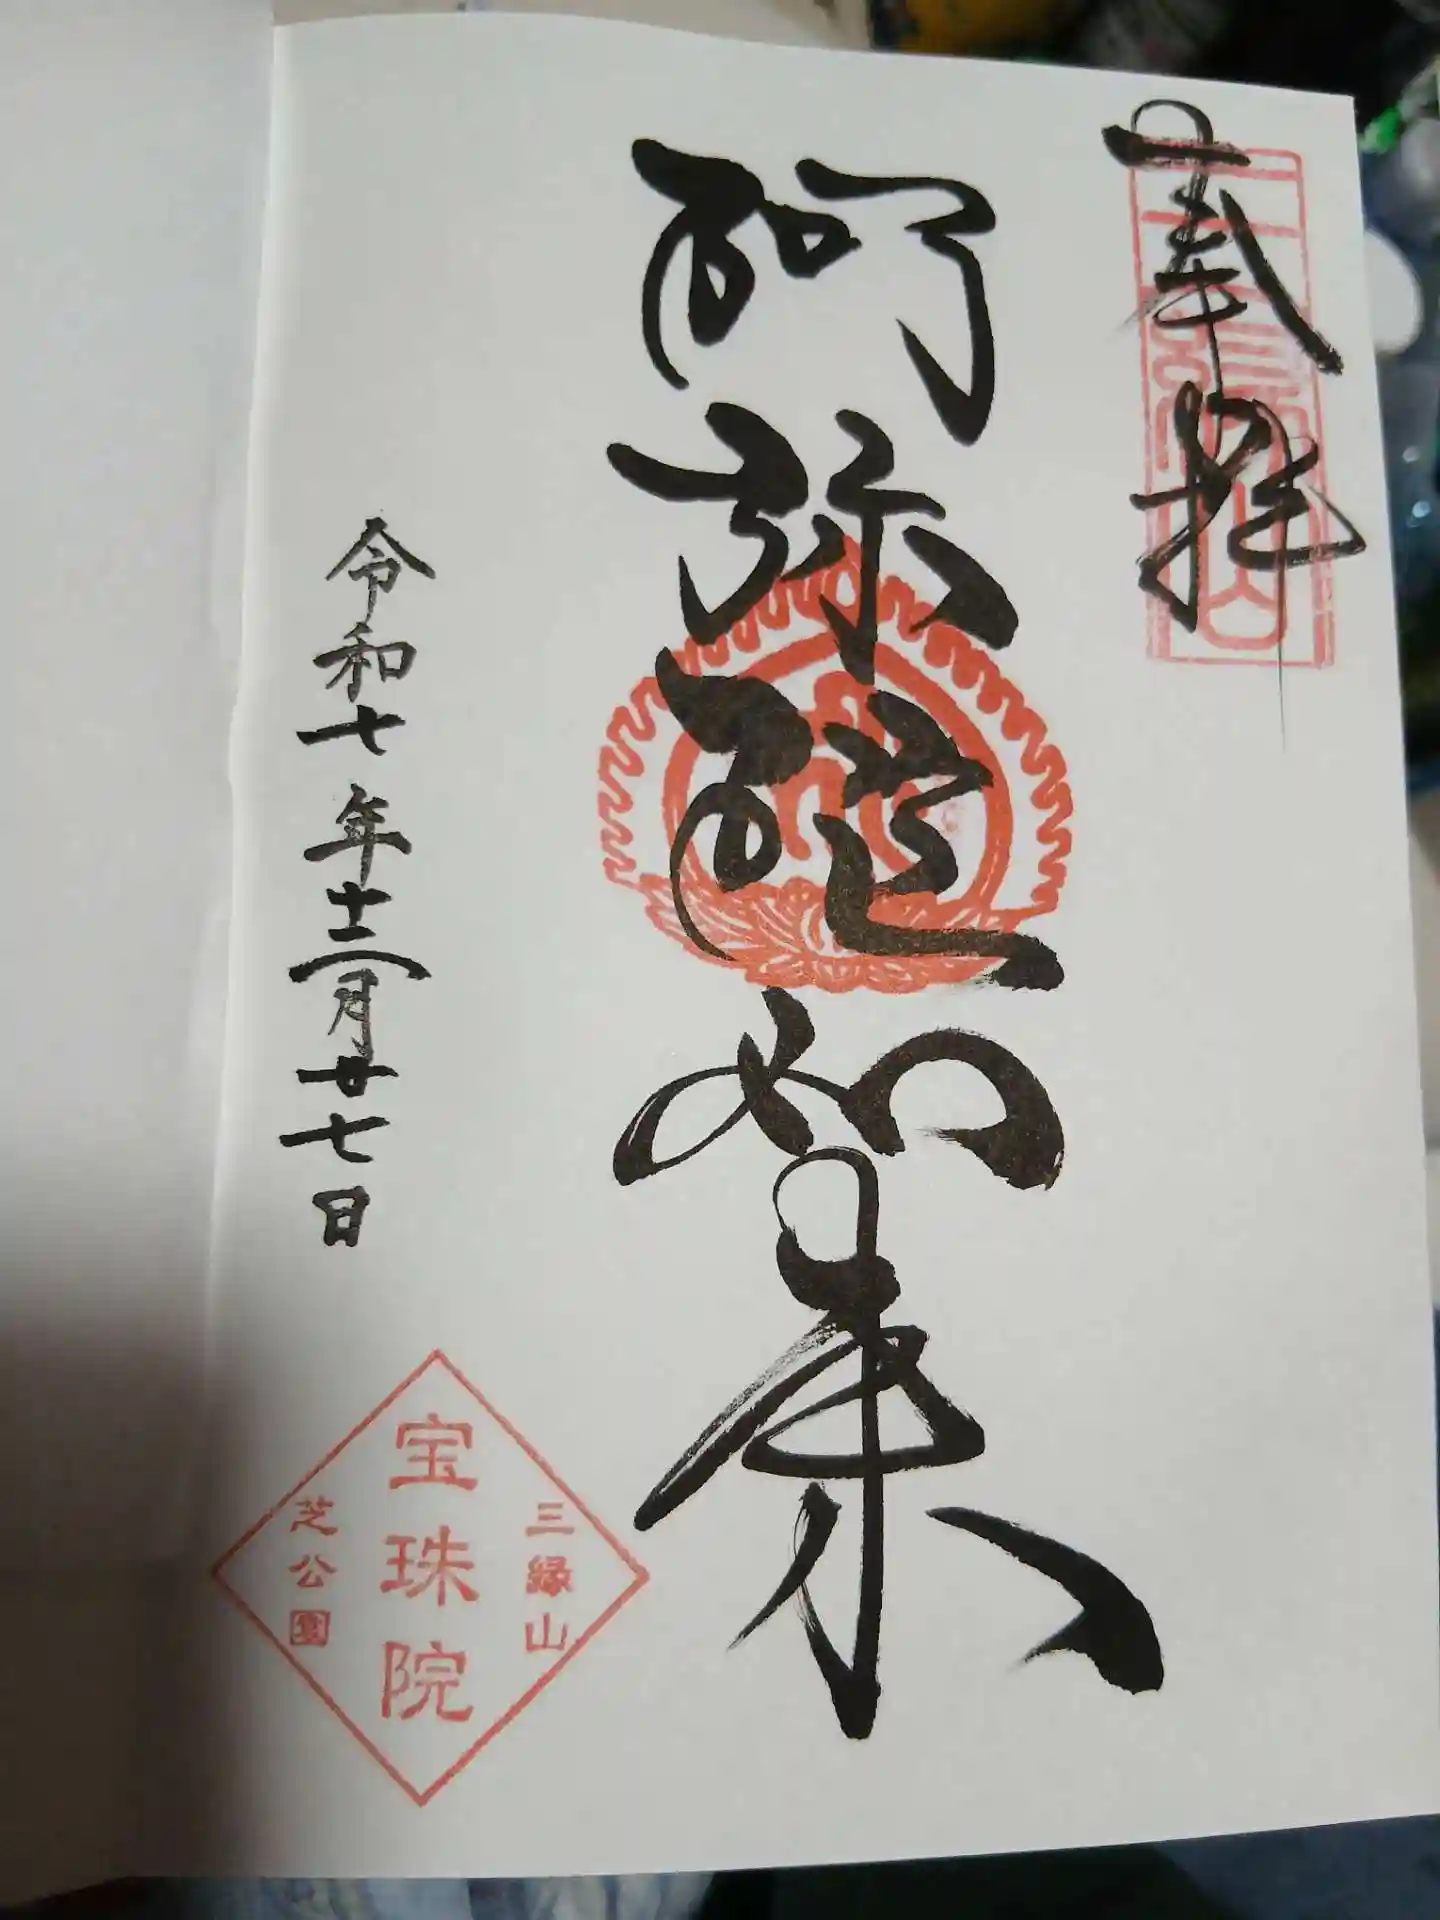 奉拝
阿弥陀如来
令和七年十二月廿七日
三縁山
宝珠院
芝公園